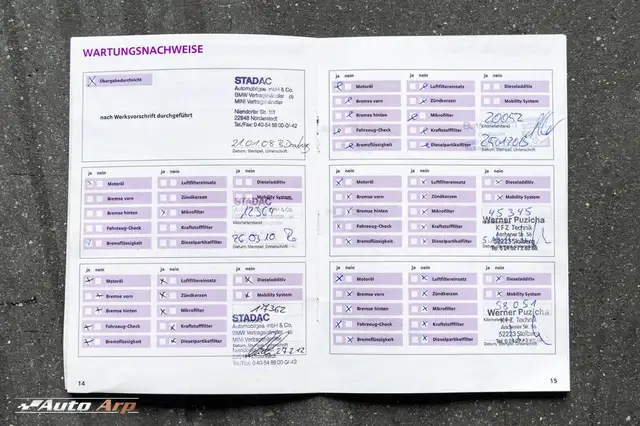 WARTUNGSNACHWEISE
Übergabedurchsicht
nach Werksvorschrift durchgeführt
STADAC
Automobilges. mbH & Co.
BMW Vertragshändler
MINI Vertragshändler
22848 Norderstedt
21.01.08
Datum, Stempel, Unterschrift
ja nein ja nein ja nein
Motoröl Luftfiltereinsatz Dieseladditiv
Bremse vorn Zündkerzen Mobility System
Bremse hinten Mikrofilter
Fahrzeug-Check Kraftstofffilter
Bremsflüssigkeit Dieselpartikelfilter
STADAC
12364
26.03.10
Datum, Stempel, Unterschrift
ja nein ja nein ja nein
Motoröl Luftfiltereinsatz Dieseladditiv
Bremse vorn Zündkerzen Mobility System
Bremse hinten Mikrofilter
Fahrzeug-Check Kraftstofffilter
Bremsflüssigkeit Dieselpartikelfilter
17362
STADAC
Automobilges. mbH & Co.
BMW Vertragshändler
MINI Vertragshändler
27.2.12
14
ja nein ja nein ja nein
Motoröl Luftfiltereinsatz Dieseladditiv
Bremse vorn Zündkerzen Mobility System
Bremse hinten Mikrofilter
Fahrzeug-Check Kraftstofffilter
Bremsflüssigkeit Dieselpartikelfilter
20052
Kilometerstand
Datum, Stempel, Unterschrift
ja nein ja nein ja nein
Motoröl Luftfiltereinsatz Dieseladditiv
Bremse vorn Zündkerzen Mobility System
Bremse hinten Mikrofilter
Fahrzeug-Check Kraftstofffilter
Bremsflüssigkeit Dieselpartikelfilter
45345
Werner Puzicha
KFZ Technik
Aachener Str. 56
52223 Stolberg
ja nein ja nein ja nein
Motoröl Luftfiltereinsatz Dieseladditiv
Bremse vorn Zündkerzen Mobility System
Bremse hinten Mikrofilter
Fahrzeug-Check Kraftstofffilter
Bremsflüssigkeit Dieselpartikelfilter
58051
Werner Puzicha
KFZ Technik
Aachener Str. 56
52223 Stolberg
15
Auto Arp